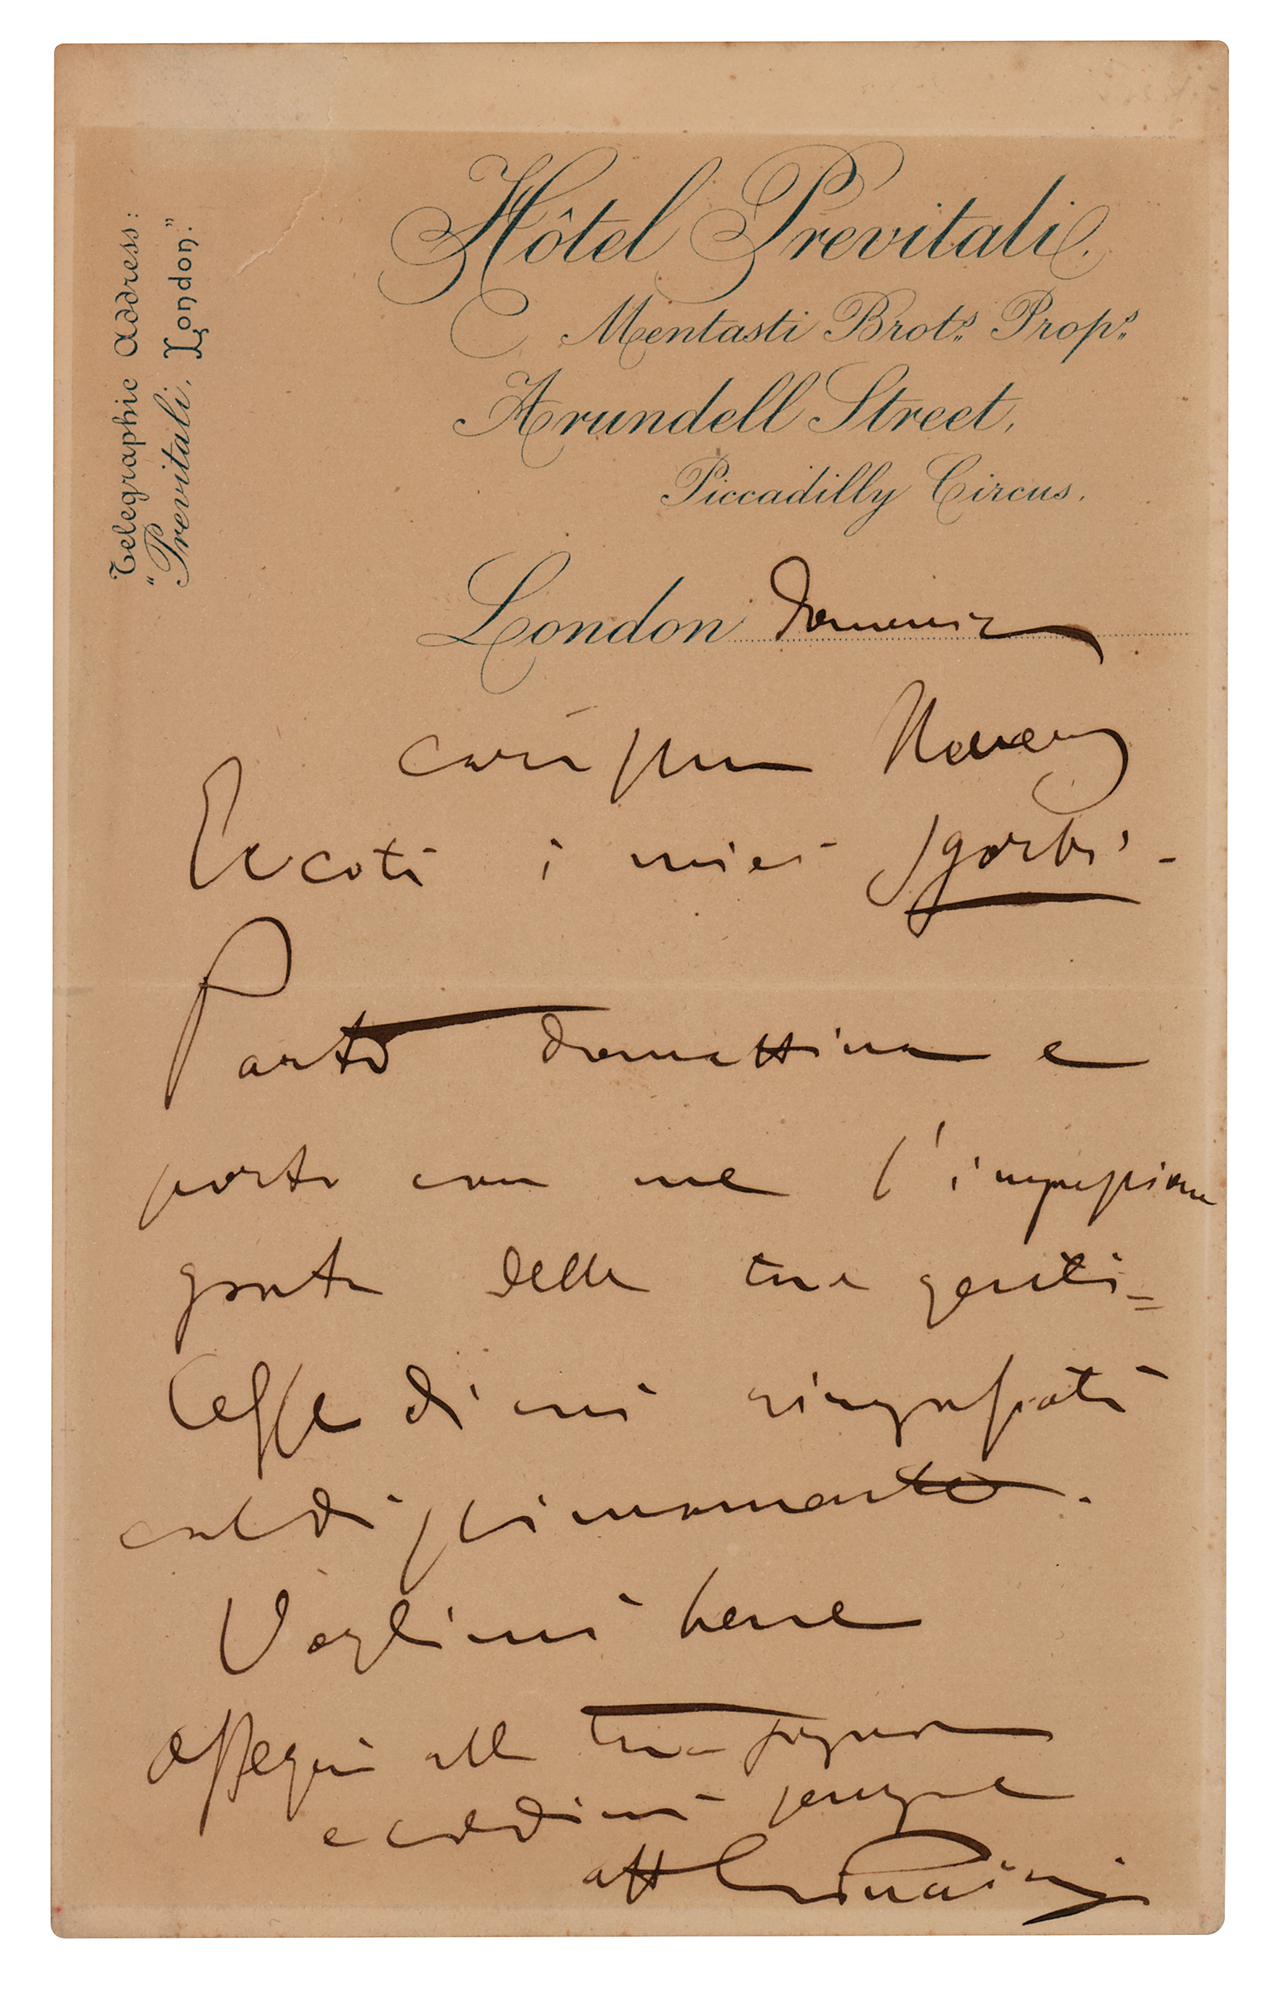 Telegraphic Address:
"Previtali, London."
Hôtel Previtali.
Mentasti Brotrs. Props.
Arundell Street,
Piccadilly Circus.
London domenica
carissimo
Eccoti i miei sgorbi -
Parto domattina e
porto con me l'impressione
grata delle tue genti=
lesse di cui ringraziati
caldissimamente.
Voglimi bene
ossequi alla tua signora
e credimi sempre
aff GPuccini